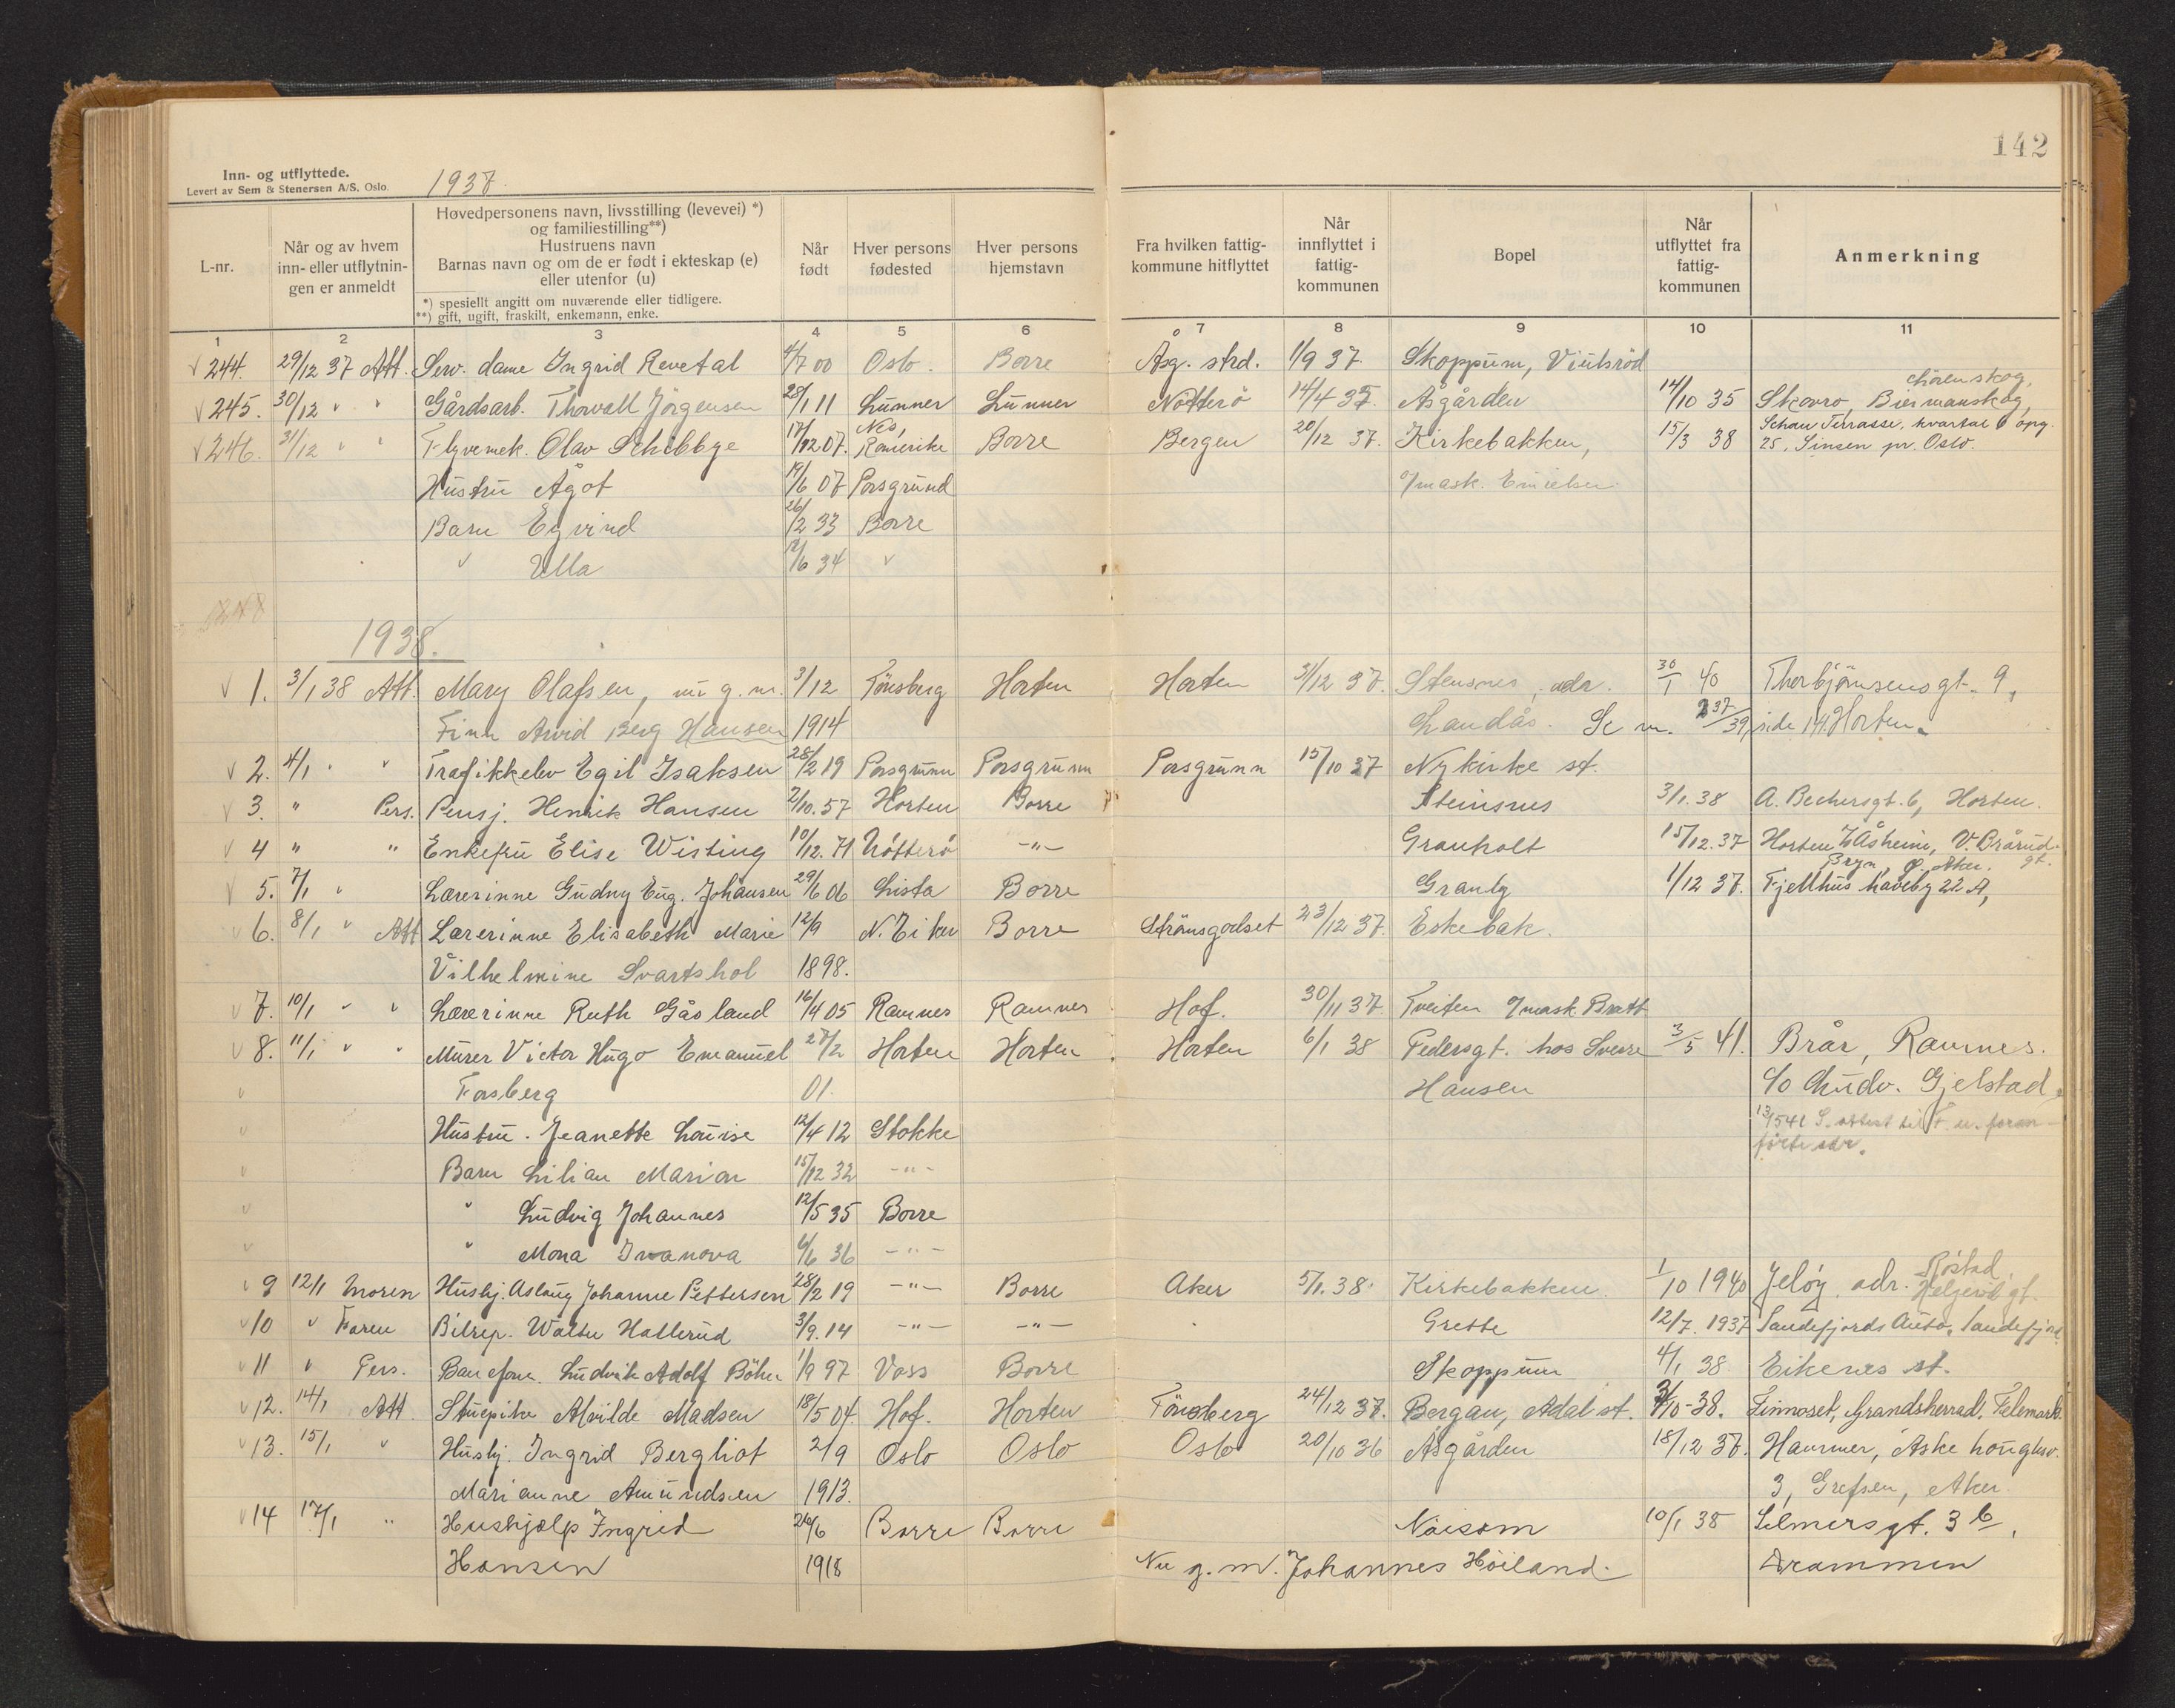 142
Inn- og utflyttede.
Levert av Sem & Stenersen A/S. Oslo.
1937.
L-nr.
Når og av hvem inn- eller utflytnin- gen er anmeldt
Høvedpersonens navn, livsstilling (levevei) *)
og familiestilling**)
Hustruens navn
Barnas navn og om de er født i ekteskap (e)
eller utenfor (u)
*) spesiellt angitt om nuværende eller tidligere.
**) gift, ugift, fraskilt, enkemann, enke.
Når født
Hver persons fødested
Hver persons hjemstavn
Fra hvilken fattig- kommune hitflyttet
Når innflyttet i fattig- kommunen
Bopel
Når utflyttet fra fattig- kommunen
Anmerkning
1 2 3 4 5 6 7 8 9 10 11
244. 29/12 37 Att. Serv. dame Ingrid Revetal 4/7 00 Oslo. Borre Åsg. strd. 1/9 37. Skoppum,
245. 30/12 " " Gårdsarb. Thorvall Jörgensen 28/1 11 Lunner Lunner Nötterö 14/4 35. Åsgården 14/10 35 Skovro,
246. 31/12 " " Flyvemek. Olav Schibbye 17/12 07. Nes, Romerike Borre Bergen 20/12 37. Kirkebakken, 15/3 38 Schau Terrasse, kvartal 6 opg. 25, Sinsen pr. Oslo.
Hustru Ågot 19/6 07 Porsgrund
Barn Eyvind 26/2 33 Borre
" Ulla 12/6 34 "
1938.
1. 3/1 38 Att. Mary Olafsen, nu g. m. 3/12 Tönsberg Horten Horten 31/12 37. Stensnes, adr. 30/1 40 Thorbjörnsens gt. 9,
Finn Arvid Berg Hansen 1914 Landås. Se nr. 237/39, side 141. Horten.
2. 4/1 " " Trafikkelev Egil Isaksen 28/2 19 Porsgrunn Porsgrunn Porsgrunn 15/10 37 Nykirke st.
3. " Pers. Pensj. Henrik Hansen 2/10. 57 Horten Borre Steinsnes 3/1. 38 A. Bechersgt. 6, Horten.
4 " " Enkefru Elise Wisting 10/12. 71 Nötterö -"- Granholt 15/12. 37 Horten
5. 7/1 " Lærerinne Gudny Eug. Johansen 29/6 06 Lista Borre Granly 1/12 37. Fjellhus haveby 22 A, Bryn, Ø. Aker.
6. 8/1 " Att Lærerinne Elisabeth Marie 12/9 N. Eiker Borre Strömsgodset 23/12 37. Eskebak.
Vilhelmine Svartshol 1898.
7. 10/1 " " Lærerinne Ruth Gåsland 16/4 05 Ramnes Ramnes Hof. 30/11 37. Tveiten
8. 11/1 " " Murer Victor Hugo Emanuel 27/2 Horten Horten Horten 6/1 38 Federsgt. hos Sverre 3/5 41. Brår, Ramnes.
Forsberg 01. Hansen c/o Ludv. Gjelstad.
Hustru. Jeanette Louise 12/4 12 Stokke
Barn Lilian Marion 15/12 32 -"-
" Ludvig Johannes 12/5 35 Borre
" Mona Ivanova 6/6 36 -"-
9 12/1 Moren Hushj. Aslaug Johanne Pettersen 28/2 19 -"- Borre Aker 5/1. 38. Kirkebakken. 1/10 1940 Jeløy. adr. Röstad,
10 " Faren Bilrep. Walter Hallerud 3/9. 14 -"- -"- Grette 12/7. 1937 Sandefjords Auto, Sandefjord
11 " Pers. Baneform. Ludvik Adolf Böhn 1/9 97 Voss Borre Skoppum 4/1 38. Eikenes st.
12. 14/1 Att. Stuepike Alvilde Madsen 18/5 04. Hof. Horten Tönsberg 24/12 37. Bergan, Adal st. 3/10-38. Grandsherrad. Telemark.
13. 15/1 " Hushj. Ingrid Bergliot 2/9 Oslo Oslo Oslo 20/10 36 Åsgården 18/12 37. Hammer,
Marianne Amundsen 1913. 3, Grefsen, Aker.
14 17/1 " Hushjælp Ingrid 26/6 Borre Borre Nöisom 10/1 38 Selmersgt. 3 b,
Hansen 1918 Nu g. m. Johannes Höiland. Drammen